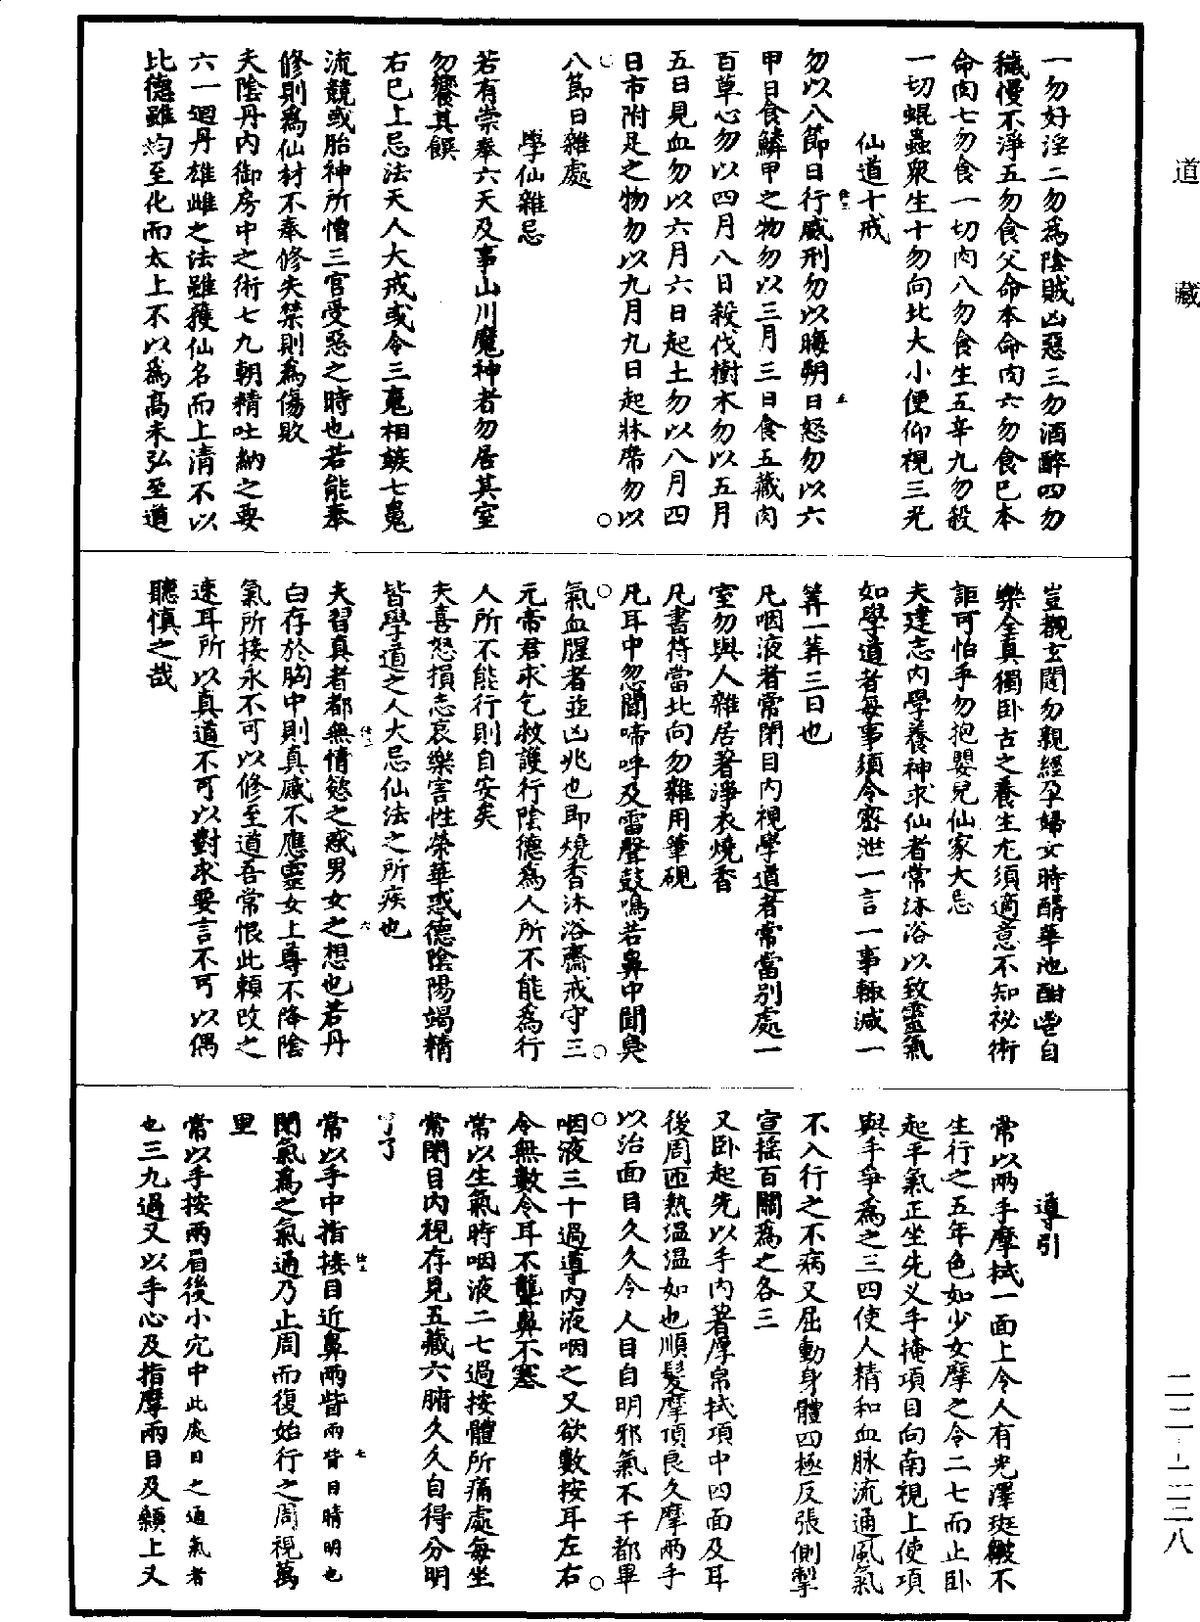 道藏
一勿好淫二勿為陰賊凶惡三勿酒醉四勿
穢慢不淨五勿食父命本命肉六勿食己本
命肉七勿食一切肉八勿食生五辛九勿殺
一切蜫蟲衆生十勿向北大小便仰視三光
仙道十戒
勿以八節日行威刑勿以晦朔日怒勿以六
甲日食鱗甲之物勿以三月三日食五藏肉
百草心勿以四月八日殺伐樹木勿以五月
五日見血勿以六月六日起土勿以八月四
日市附足之物勿以九月九日起牀席勿以
八節日雜處
學仙雜忌
若有崇奉六天及事山川魔神者勿居其室
勿饗其饌
右已上忌法天人大戒或令三魂相嫉七魄
流競或胎神所憎三官受惡之時也若能奉
修則為仙材不奉修失禁則為傷敗
夫陰丹內御房中之術七九朝精吐納之要
六一迴丹雄雌之法雖獲仙名而上清不以
比德雖均至化而太上不以為高未弘至道
豈覩玄闥勿親經孕婦女時醑華池酣鬯自
樂全真獨卧古之養生尤須適意不知祕術
詎可怕乎勿抱嬰兒仙家大忌
夫建志內學養神求仙者常沐浴以致靈氣
如學道者每事須令密泄一言一事輒減一
筭一筭三日也
凡咽液者常閉目內視學道者常當別處一
室勿與人雜居著淨衣燒香
凡書符當北向勿雜用筆硯
凡耳中忽聞啼呼及雷聲鼓鳴若鼻中聞臭
氣血腥者並凶兆也即燒香沐浴齋戒守三
元帝君求乞救護行陰德為人所不能為行
人所不能行則自安矣
夫喜怒損志哀樂害性榮華惑德陰陽竭精
皆學道之人大忌仙法之所疾也
夫習真者都無情慾之惑男女之想也若丹
白存於胸中則真感不應靈女上尊不降陰
氣所接永不可以修至道吾常恨此賴改之
速耳所以真道不可以對求要言不可以偶
聽慎之哉
導引
常以兩手摩拭一面上令人有光澤斑皺不
生行之五年色如少女摩之令二七而止卧
起平氣正坐先叉手掩項目向南視上使項
與手爭為之三四使人精和血脉流通風氣
不入行之不病又屈動身體四極反張側掣
宣摇百關為之各三
又卧起先以手內著厚帛拭項中四面及耳
後周匝熱溫溫如也順髮摩頂良久摩兩手
以治面目久久令人目自明邪氣不干都畢
咽液三十過導內液咽之又欲數按耳左右
令無數令耳不聾鼻不塞
常以生氣時咽液二七過按體所痛處每坐
常閉目內視存見五藏六腑久久自得分明
了了
常以手中指接目近鼻兩眥兩眥目睛明也
閉氣為之氣通乃止周而復始行之周視萬
里
常以手按兩眉後小穴中此處目之通氣者
也三九過又以手心及指摩兩目及顙上又